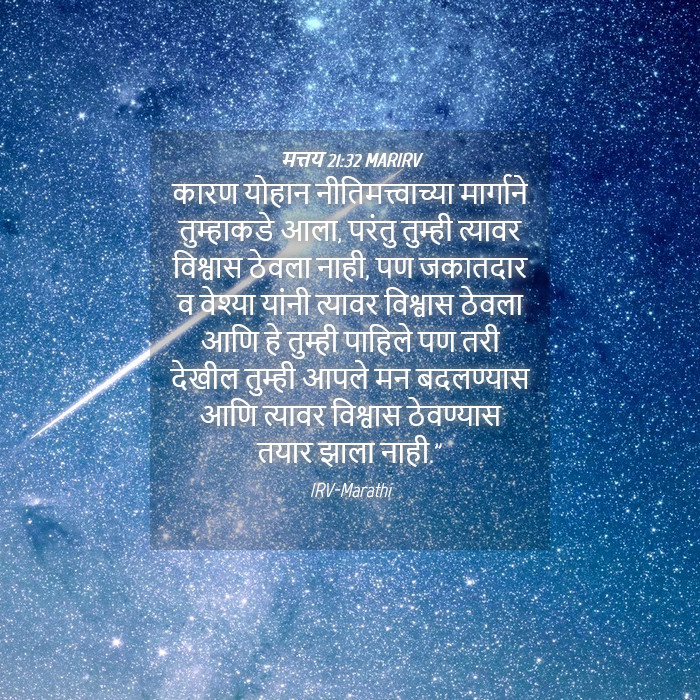 मत्तय 21:32 MARIRV
कारण योहान नीतिमत्त्वाच्या मार्गाने
तुम्हाकडे आला, परंतु तुम्ही त्यावर
विश्वास ठेवला नाही, पण जकातदार
व वेश्या यांनी त्यावर विश्वास ठेवला
आणि हे तुम्ही पाहिले पण तरी
देखील तुम्ही आपले मन बदलण्यास
आणि त्यावर विश्वास ठेवण्यास
तयार झाला नाही.”
IRV-Marathi